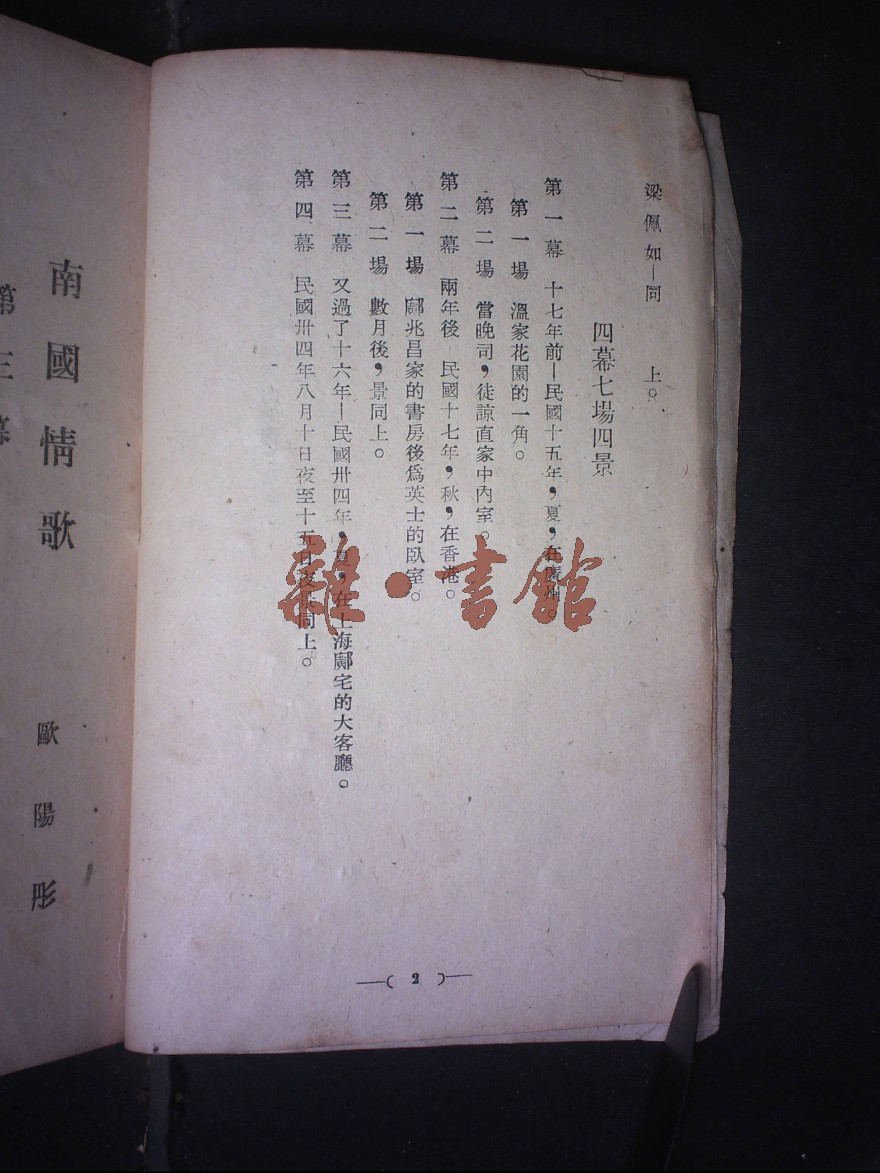 梁佩如－同　上。
四幕七場四景
第一幕　十七年前－民國十五年，夏，在廣州。
第一場　溫家花園的一角。
第二場　當晚司，徒諒直家中內室。
第二幕　兩年後－民國十七年，秋，在香港。
第一場　鄺兆昌家的書房後爲英士的臥室。
第二場　數月後，景同上。
第三幕　又過了十六年－民國卅四年，夏，在上海鄺宅的大客廳。
第四幕　民國卅四年八月十日夜至十五日夜景同上。
—( 2 )—
南國情歌
歐陽彤
第三幕
雜·書館